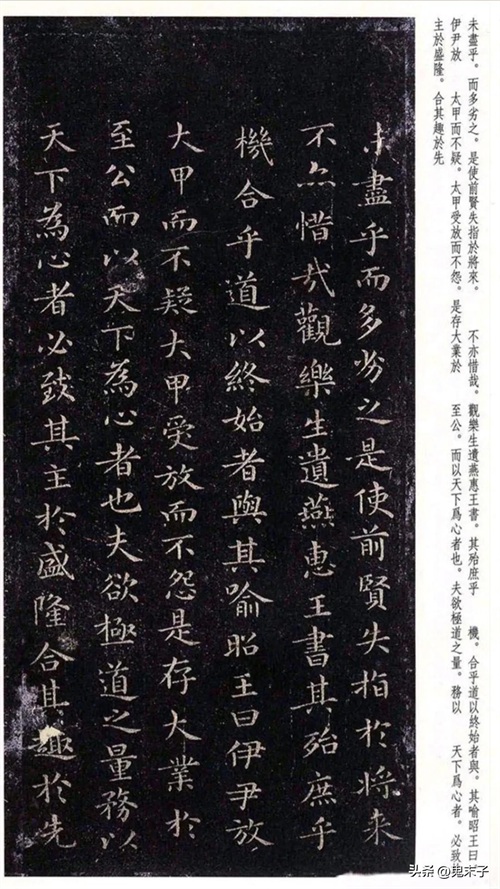 未盡乎。而多劣之。是使前賢失指於將來。 不亦惜哉。觀樂生遺燕惠王書。其殆庶乎 機。合乎道以終始者與。其喻昭王曰
伊尹放 太甲而不疑。太甲受放而不怨。是存大業於 至公。而以天下爲心者也。夫欲極道之量。務以 天下爲心者。必致
主於盛隆。合其趣於先
未盡乎而多劣之是使前賢失指於将来
不亦惜哉觀樂生遺燕惠王書其殆庶乎
機合乎道以終始者與其喻昭王曰伊尹放
大甲而不疑大甲受放而不怨是存大業於
至公而以天下為心者也夫欲極道之量務以
天下為心者必致其主於盛隆合其趣於先
头条 @鬼末子